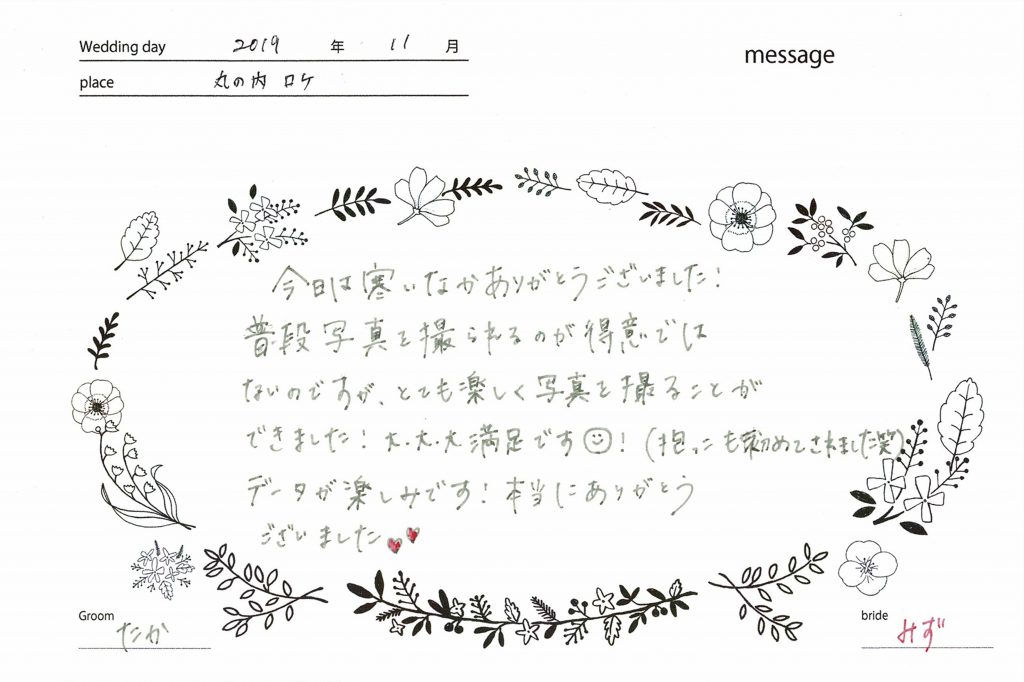 Wedding day 2019 年 11 月
message
place 丸の内 ロケ
今日は寒いなかありがとうございました!
普段写真を撮られるのが得意では
ないのですが、とても楽しく写真を撮ることが
できました! 大.大.大満足です☺! (抱っこも初めてされました笑)
データが楽しみです! 本当にありがとう
ございました♥♥
Groom たか
bride みず